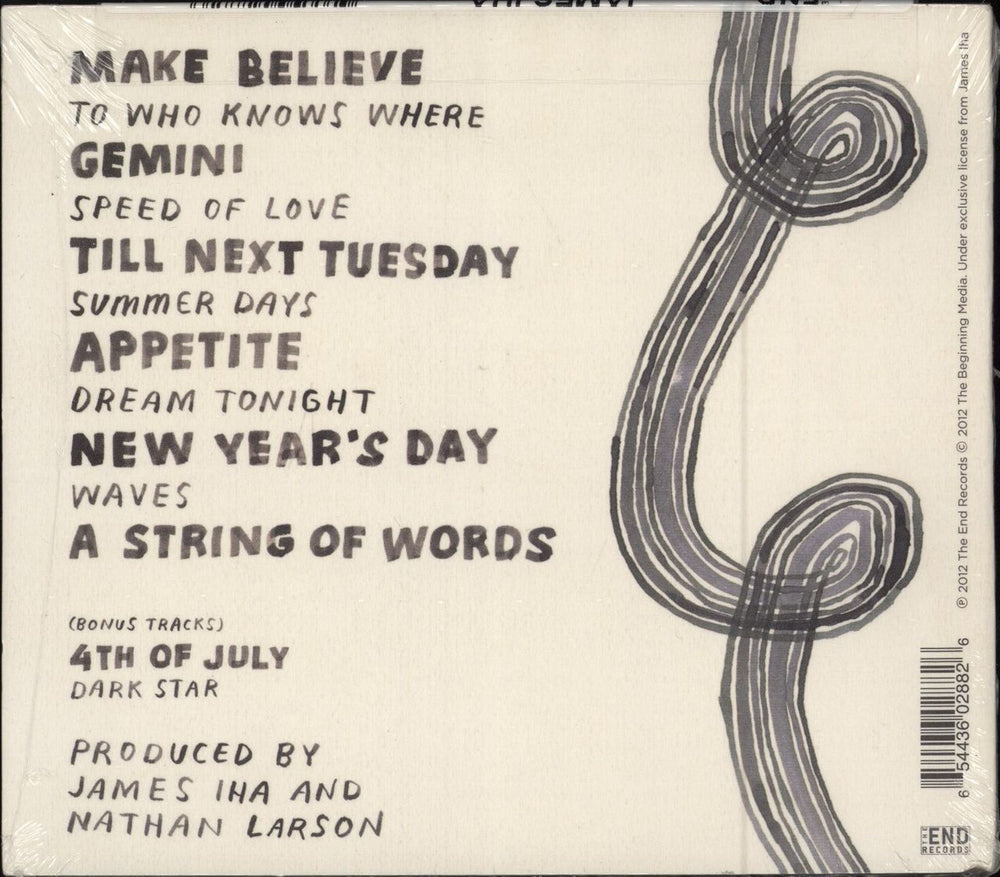 THE END
JAMES IHA
MAKE BELIEVE
TO WHO KNOWS WHERE
GEMINI
SPEED OF LOVE
TILL NEXT TUESDAY
SUMMER DAYS
APPETITE
DREAM TONIGHT
NEW YEAR'S DAY
WAVES
A STRING OF WORDS
(BONUS TRACKS)
4TH OF JULY
DARK STAR
PRODUCED BY
JAMES IHA AND
NATHAN LARSON
℗ 2012 The End Records © 2012 The Beginning Media. Under exclusive license from James Iha
6 54436 02882 6
THE END
RECORDS